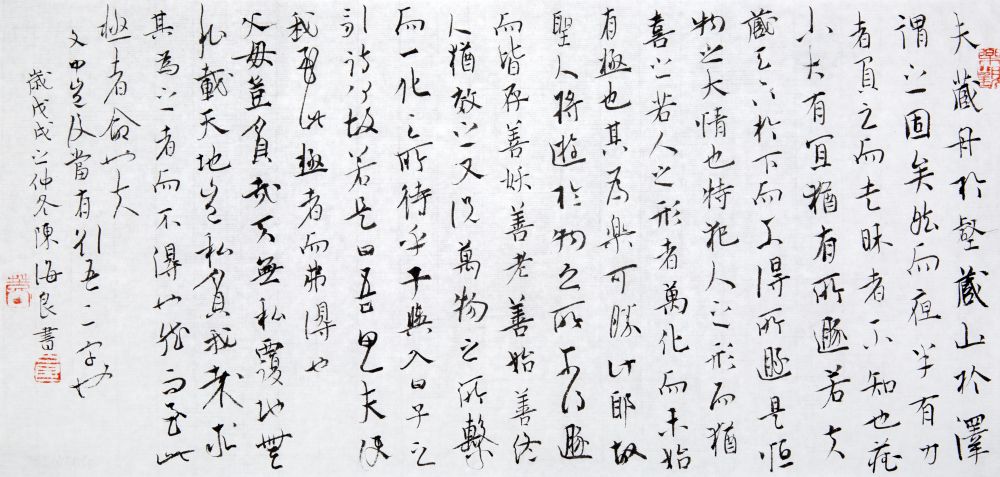 夫藏舟於壑藏山於澤
謂之固矣然而夜半有力
者負之而走昧者不知也藏
小大有宜猶有所遯若夫
藏天下於下而不得所遯是恒
物之大情也特犯人之形而猶
喜之若人之形者萬化而未始
有極也其為樂可勝計耶故
聖人將遊於物之所不得遯
而皆存善妖善老善始善終
人猶效之又況萬物之所繫
而一化之所待乎子輿入曰子之
詩何故若是曰吾思夫使
我至此極者而弗得也
父母豈貧哉天無私覆地無
私載天地豈私貧我哉求
其為之者而不得也然而至此
極者命也夫
文中豈後當有欲吾二字也
歲戊戌之仲冬陳海良書